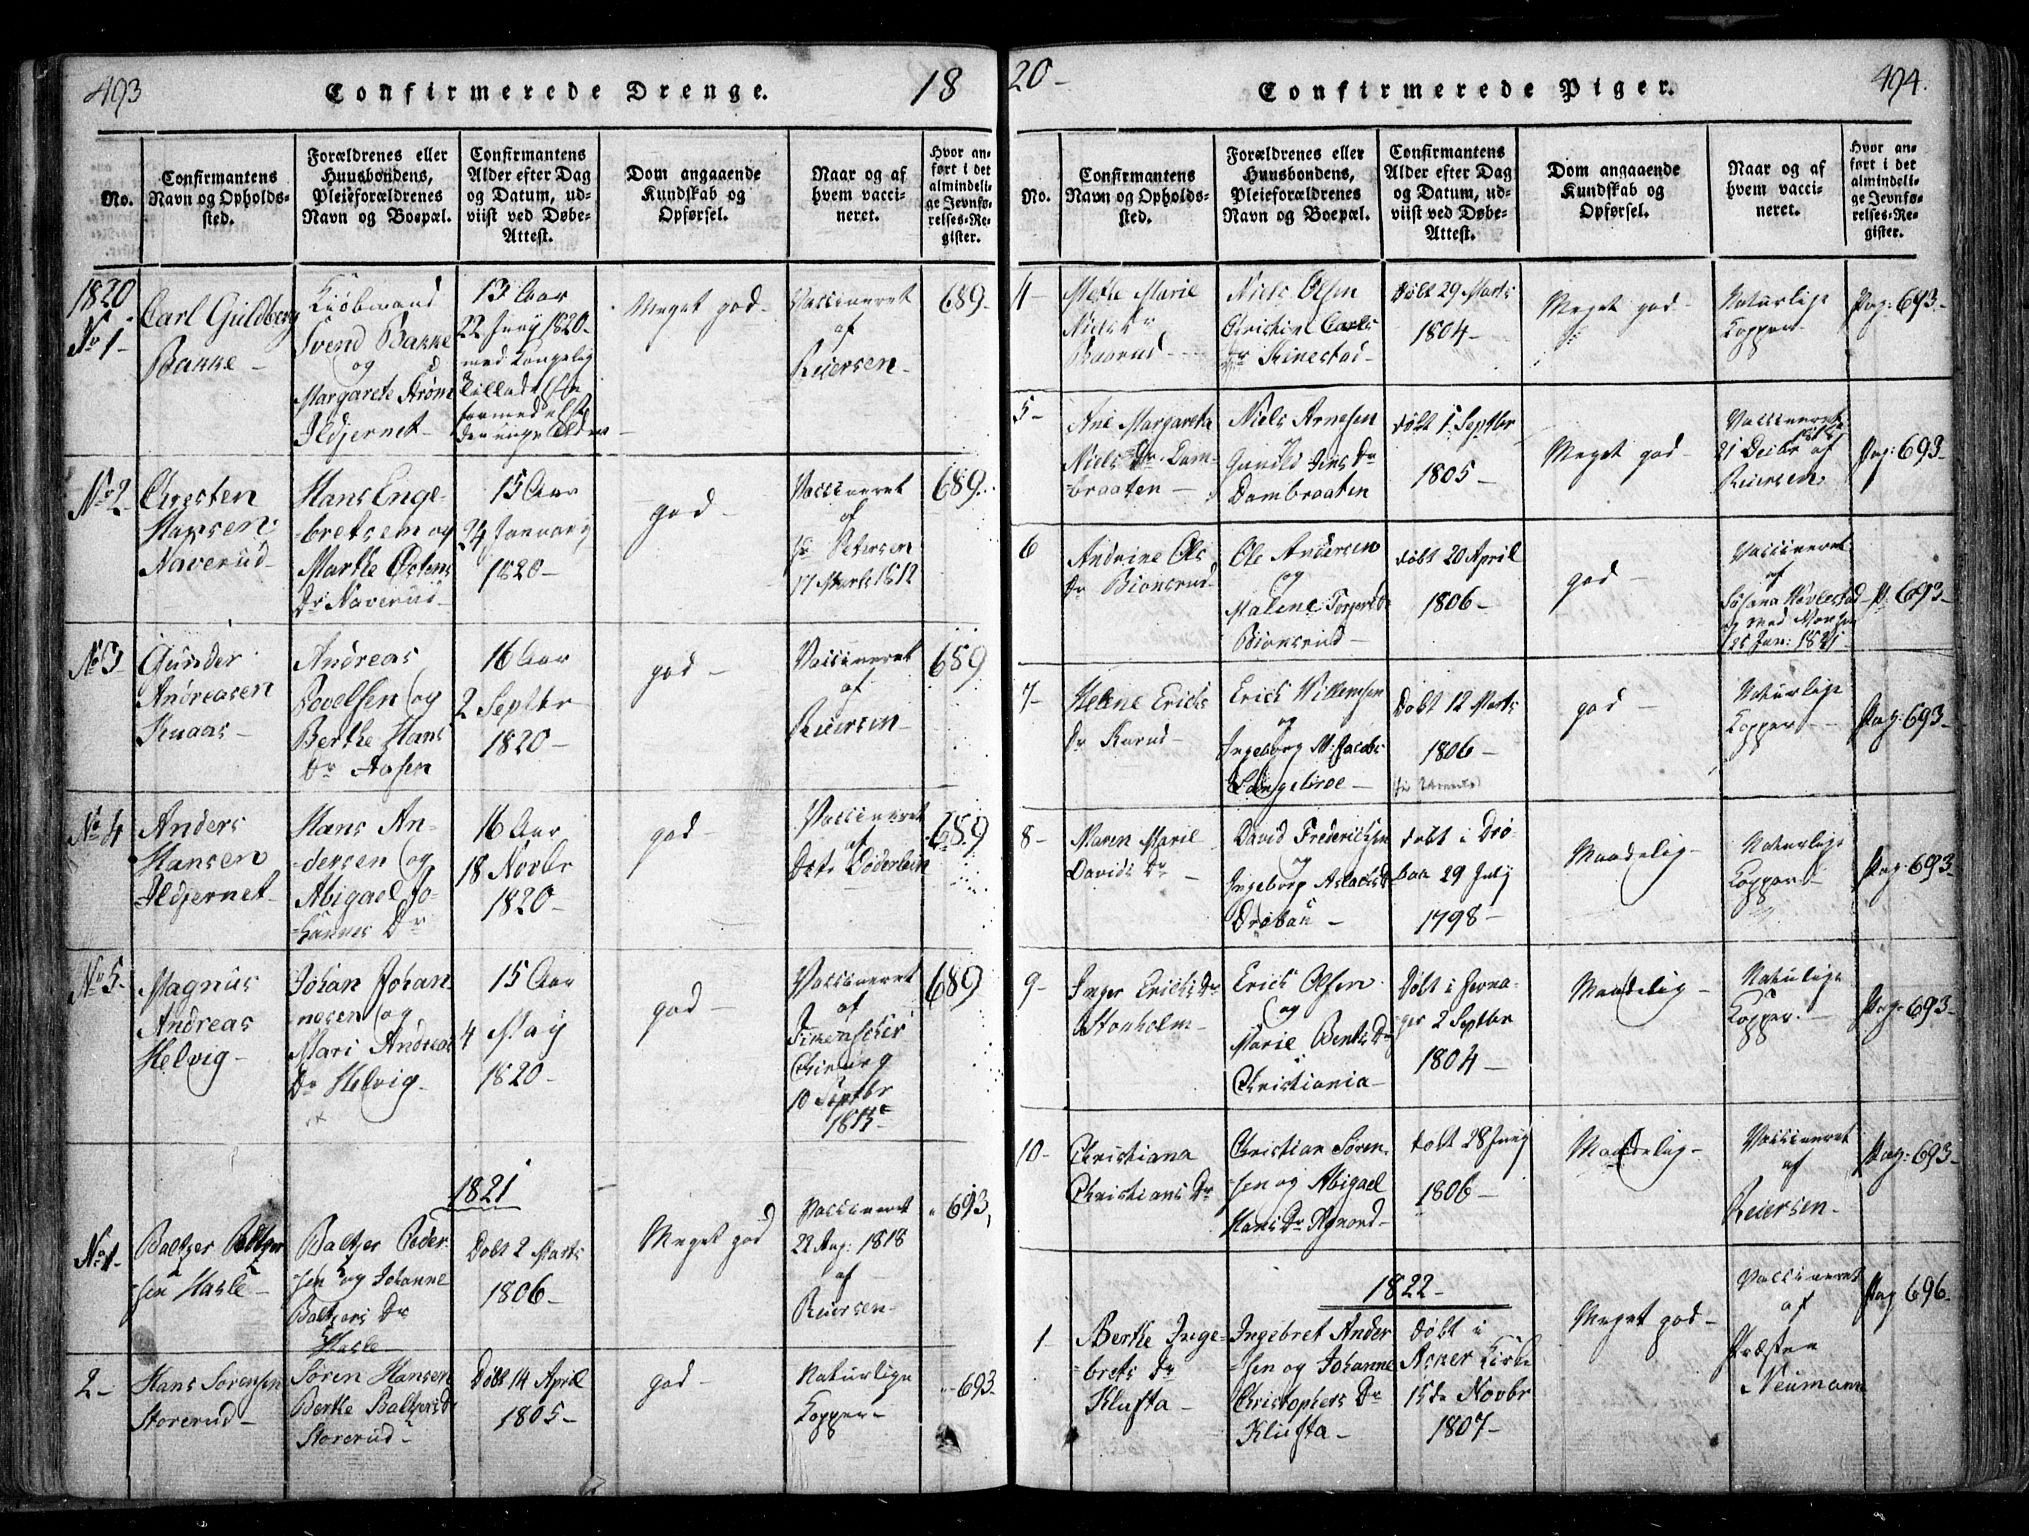 493
Confirmerede Drenge.
18
No.
Confirmantens
Navn og Opholds-
sted.
Forældrenes eller
Huusbondens,
Pleieforældrenes
Navn og Boepæl.
Confirmantens
Alder efter Dag
og Datum, ud-
viist ved Døbe-
Attest.
Dom angaaende
Kundskab og
Opførsel.
Naar og af
hvem vacci-
neret.
Hvor an-
ført i det
almindeli-
ge Jevnfø-
relses-Re-
gister.
1820
No 1-
Carl Guldberg
Bakke-
Kiøbmand
Svend Bakke
og
Margarete Strøm
Ildjernet-
13 Aar
22 Juny 1820-
med Kongelig
Tilladelse
formedelst
den unge Alder-
Meget god-
Vaccineret
af
Reiersen-
689-
No 2
Chresten
Hansen
Naverud-
Hans Enge-
bretsen og
Marthe Østens
Dr Naverud-
15 Aar
24 January
1820-
god-
Vaccineret
af
Hr Petersen
17 Marts 1812
689.
No 3
Gunder
Andreasen
Knaas-
Andreas
Povelsen og
Berthe Hans
Dr Aasen
16 Aar
2 Septbr
1820-
god-
Vaccineret
af
Reiersen-
689
No 4
Anders
Hansen
Ildjernet-
Hans An-
dersen og
Abigael Jo-
hannes Dr
16 Aar
18 Novbr
1820-
god-
Vaccineret
af
Doct: Døderlein
689
No 5-
Magnus
Andreas
Helvig-
Johan Johan-
nesen og
Mari Andreas
Dr Helvig-
15 Aar
4 May
1820-
god-
Vaccineret
af
Chirurg
10 Septbr
1813-
689
1821
No 1-
Baltzer Baltzer
sen Hasle-
Baltzer Peder
sen og Johanne
Baltzers Dr
Hasle-
Døbt 2 Marts
1806-
Meget god
Vaccineret
22 Aug: 1818
af
Reiersen-
693,
2-
Hans Sørensen
Storerud-
Søren Hansen
Berthe Baltzers Dr
Storerud-
Døbt 14 April
1805-
god-
Naturlige
Kopper-
693-
20-
Confirmerede Piger.
494.
No.
Confirmantens
Navn og Opholds-
sted.
Forældrenes eller
Huusbondens,
Pleieforældrenes
Navn og Boepæl.
Confirmantens
Alder efter Dag
og Datum, ud-
viist ved Døbe-
Attest.
Dom angaaende
Kundskab og
Opførsel.
Naar og af
hvem vacci-
neret.
Hvor an-
ført i det
almindeli-
ge Jevnfø-
relses-Re-
gister.
4-
Methe Marie
Niels Dr
Baarud-
Niels Olsen
Christine Carls
Dr Kinestad-
Døbt 29 Marts
1804-
Meget god-
Naturlige
Kopper-
Pag: 693-
5-
Ane Margareta
Niels Dr Dam-
braaten-
Niels Arnesen
Gunild Jens Dr
Dambraaten
døbt 1 Septbr
1805-
Meget god-
Vaccineret
21 Decbr
af
Reiersen.
Pag: 693-
6
Andrine Ols
Dr Biønsrud-
Ole Andersen
og
Malene Torgers Dr
Biønsrud-
døbt 20 April
1806-
god-
Vaccineret
af
Susana
og med
25 Jan: 1821-
P. 693-
7-
Helene Erichs
Dr Karud-
Erich Willumsen
og
Ingeborg M: Jacobs
Langebroe-
Døbt 12 Marts
1806-
god-
Naturlige
Kopper-
Pag: 693-
8-
Maren Marie
Davids Dr-
David Frederichsen
og
Ingeborg Aslachs Dr
Drøbau-
døbt i Drø-
bau 29 July
1798-
Maadelig-
Naturlige
Kopper-
Pag: 693-
9-
Inger Erichs Dr
Stonholm-
Erich Olsen
og
Marie Bents Dr
Christiania-
Døbt i Jevna-
ger 2 Septbr
1804-
Maadelig-
Natulige
Kopper-
Pag: 693-
10-
Christiana
Christians Dr
Christian Søren-
sen og Abigael
Hans Dr Agnord-
døbt 28 Juny
1806-
Maadelig-
Vaccineret
af
Reiersen-
Pag: 693-
1822-
1
Berthe Inge-
brets Dr
Klufta-
Ingebret Ander
sen og Johanne
Christophers Dr
Klufta-
døbt i
Asker Kirke
15de Novbr
1807-
Meget god-
Vaccineret
af
Præsten
Neumann
Pag 696-